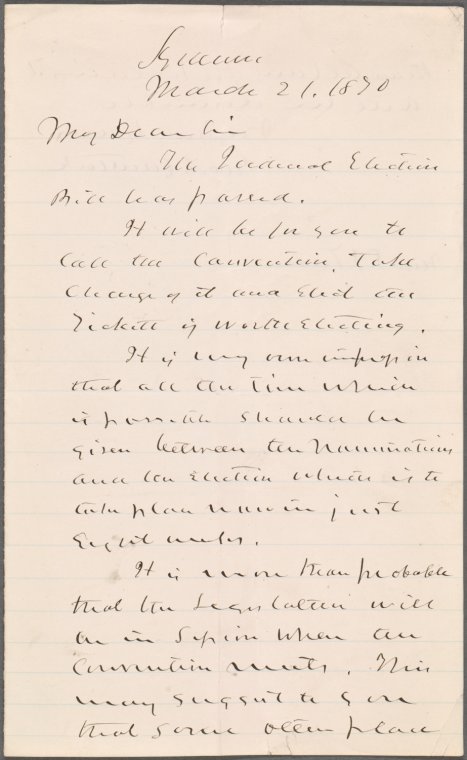 Syracuse
March 21. 1870
My Dear Sir
The Judicial Election
Bill has passed.
It will be for you to
Call the Convention, take
Charge of it and Elect the
Tickett if worth Electing.
It is my own impression
that all the time which
is possible should be
given between the Nominations
and the Election which is to
take place now in just
Eight weeks.
It is more than probable
that the Legislature will
be in Session when the
Convention meets. This
may suggest to you
that some other place